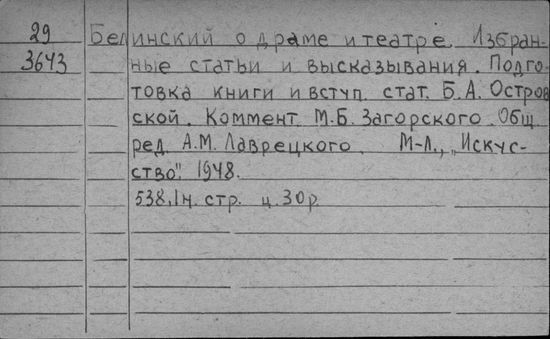 29 Белинский о драме и театре. Избран-
3643 ные статьи и высказывания. Подго-
товка книги и вступ. стат. Б.А. Остров
ской. Коммент. М.Б. Загорского. Общ
ред. А.М. Лаврецкого. М-Л., „Искус-
ство". 1948.
538,1н. стр. ц. 30р.